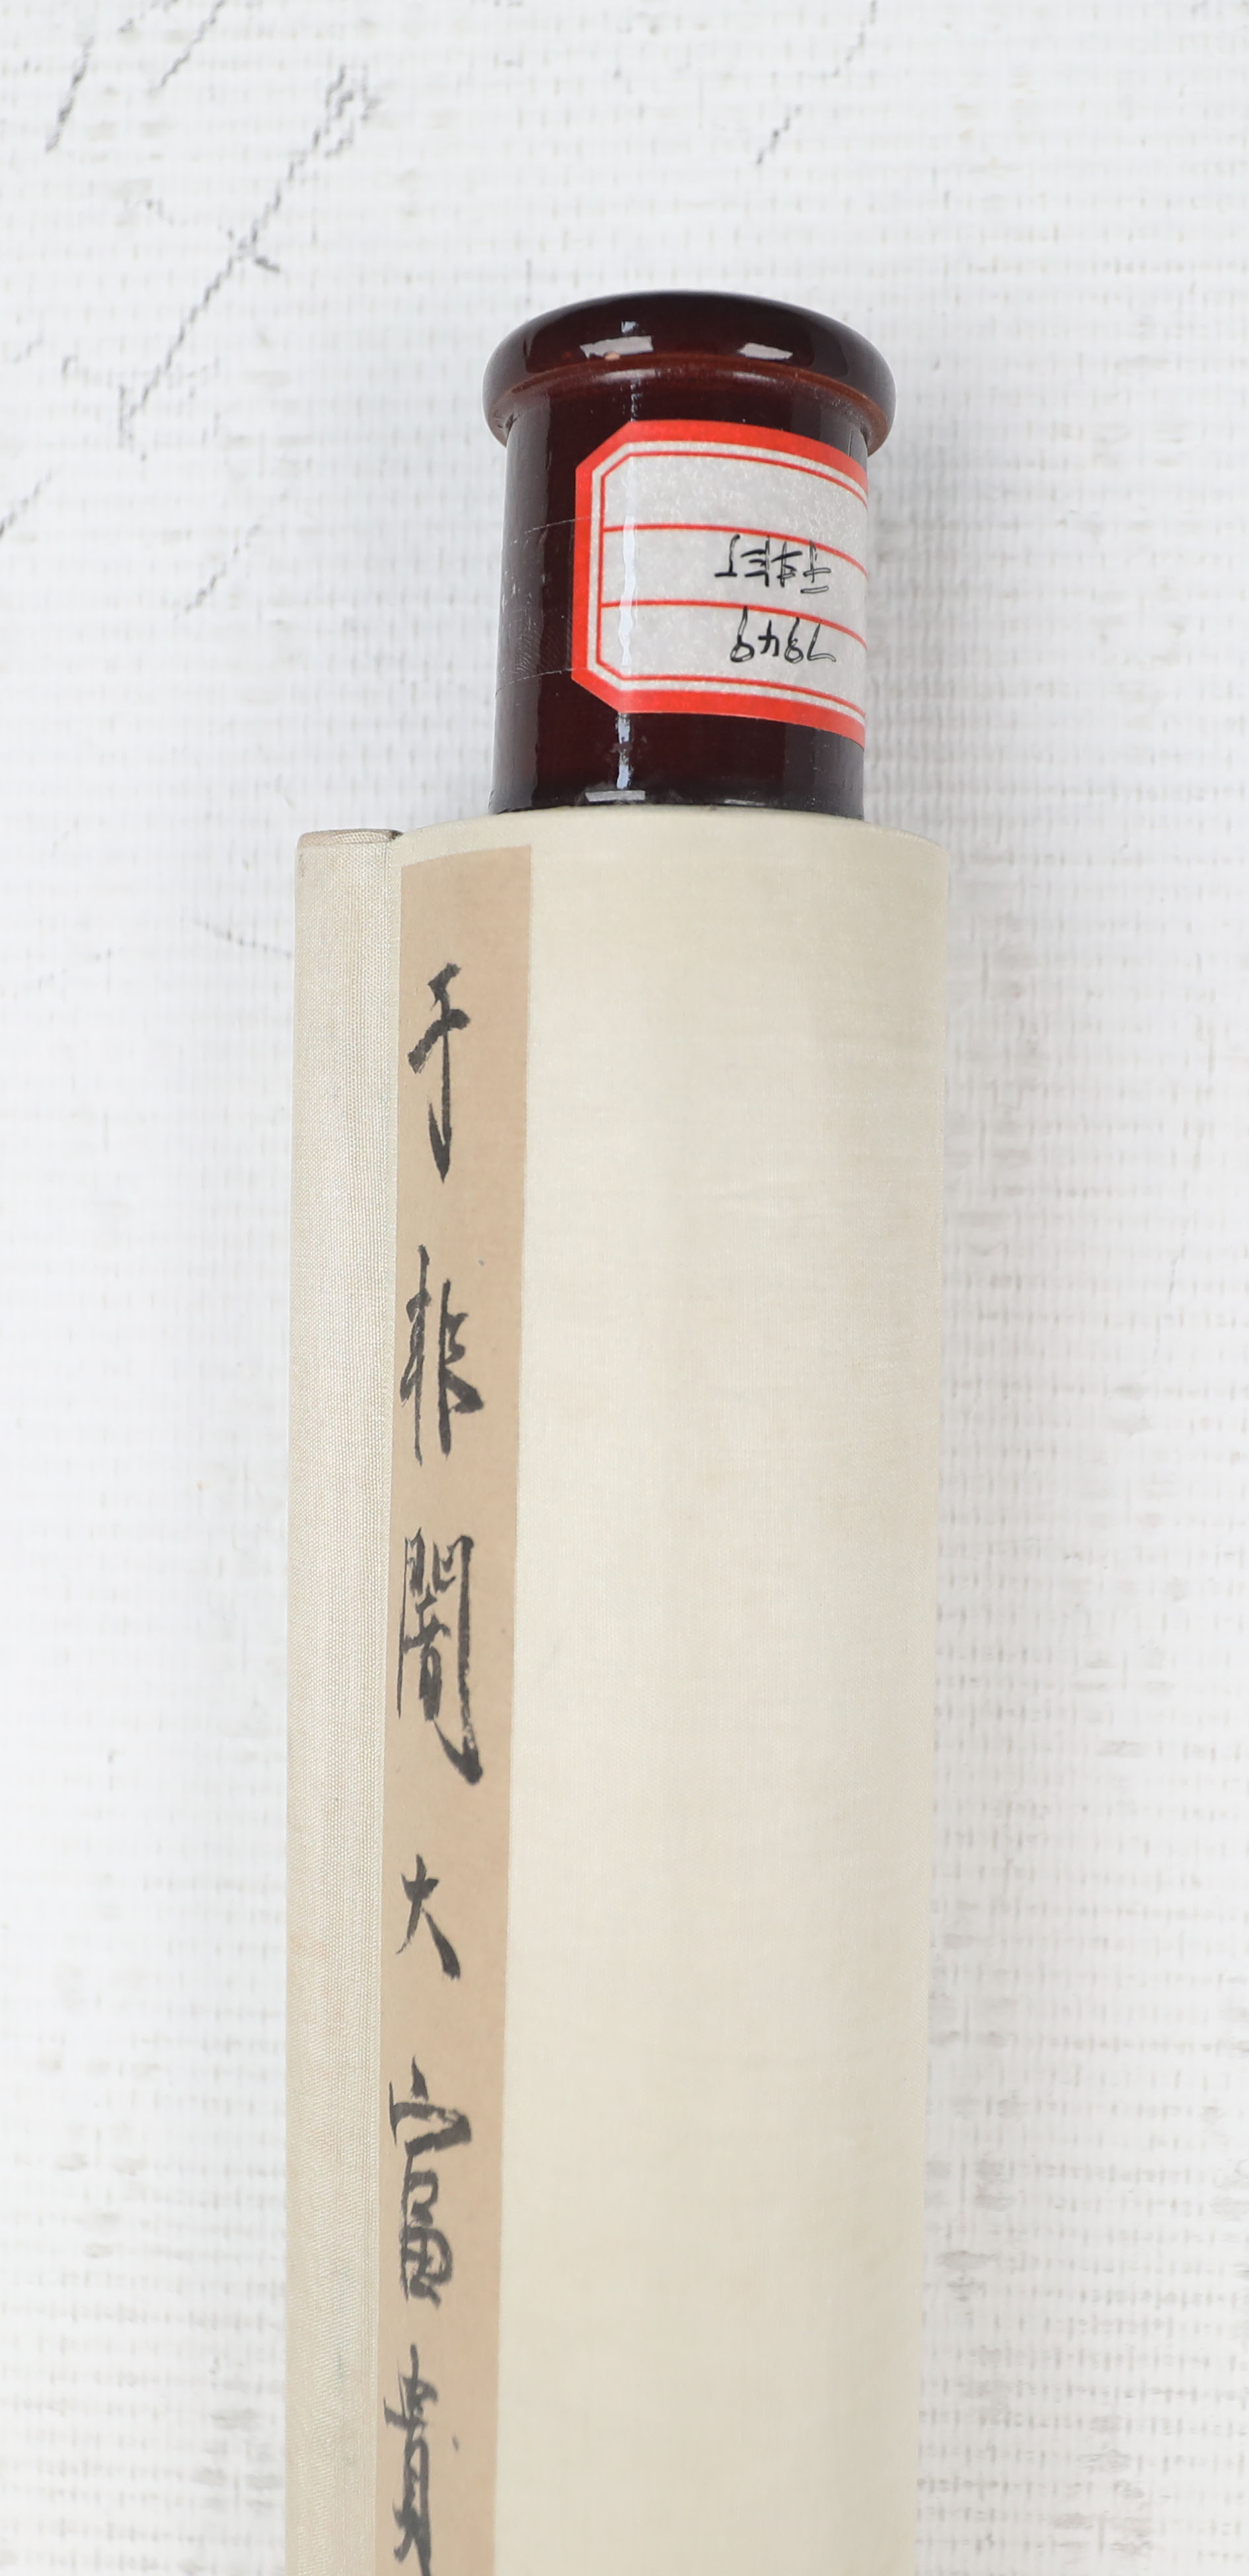 于非闇大富貴
7849
于非